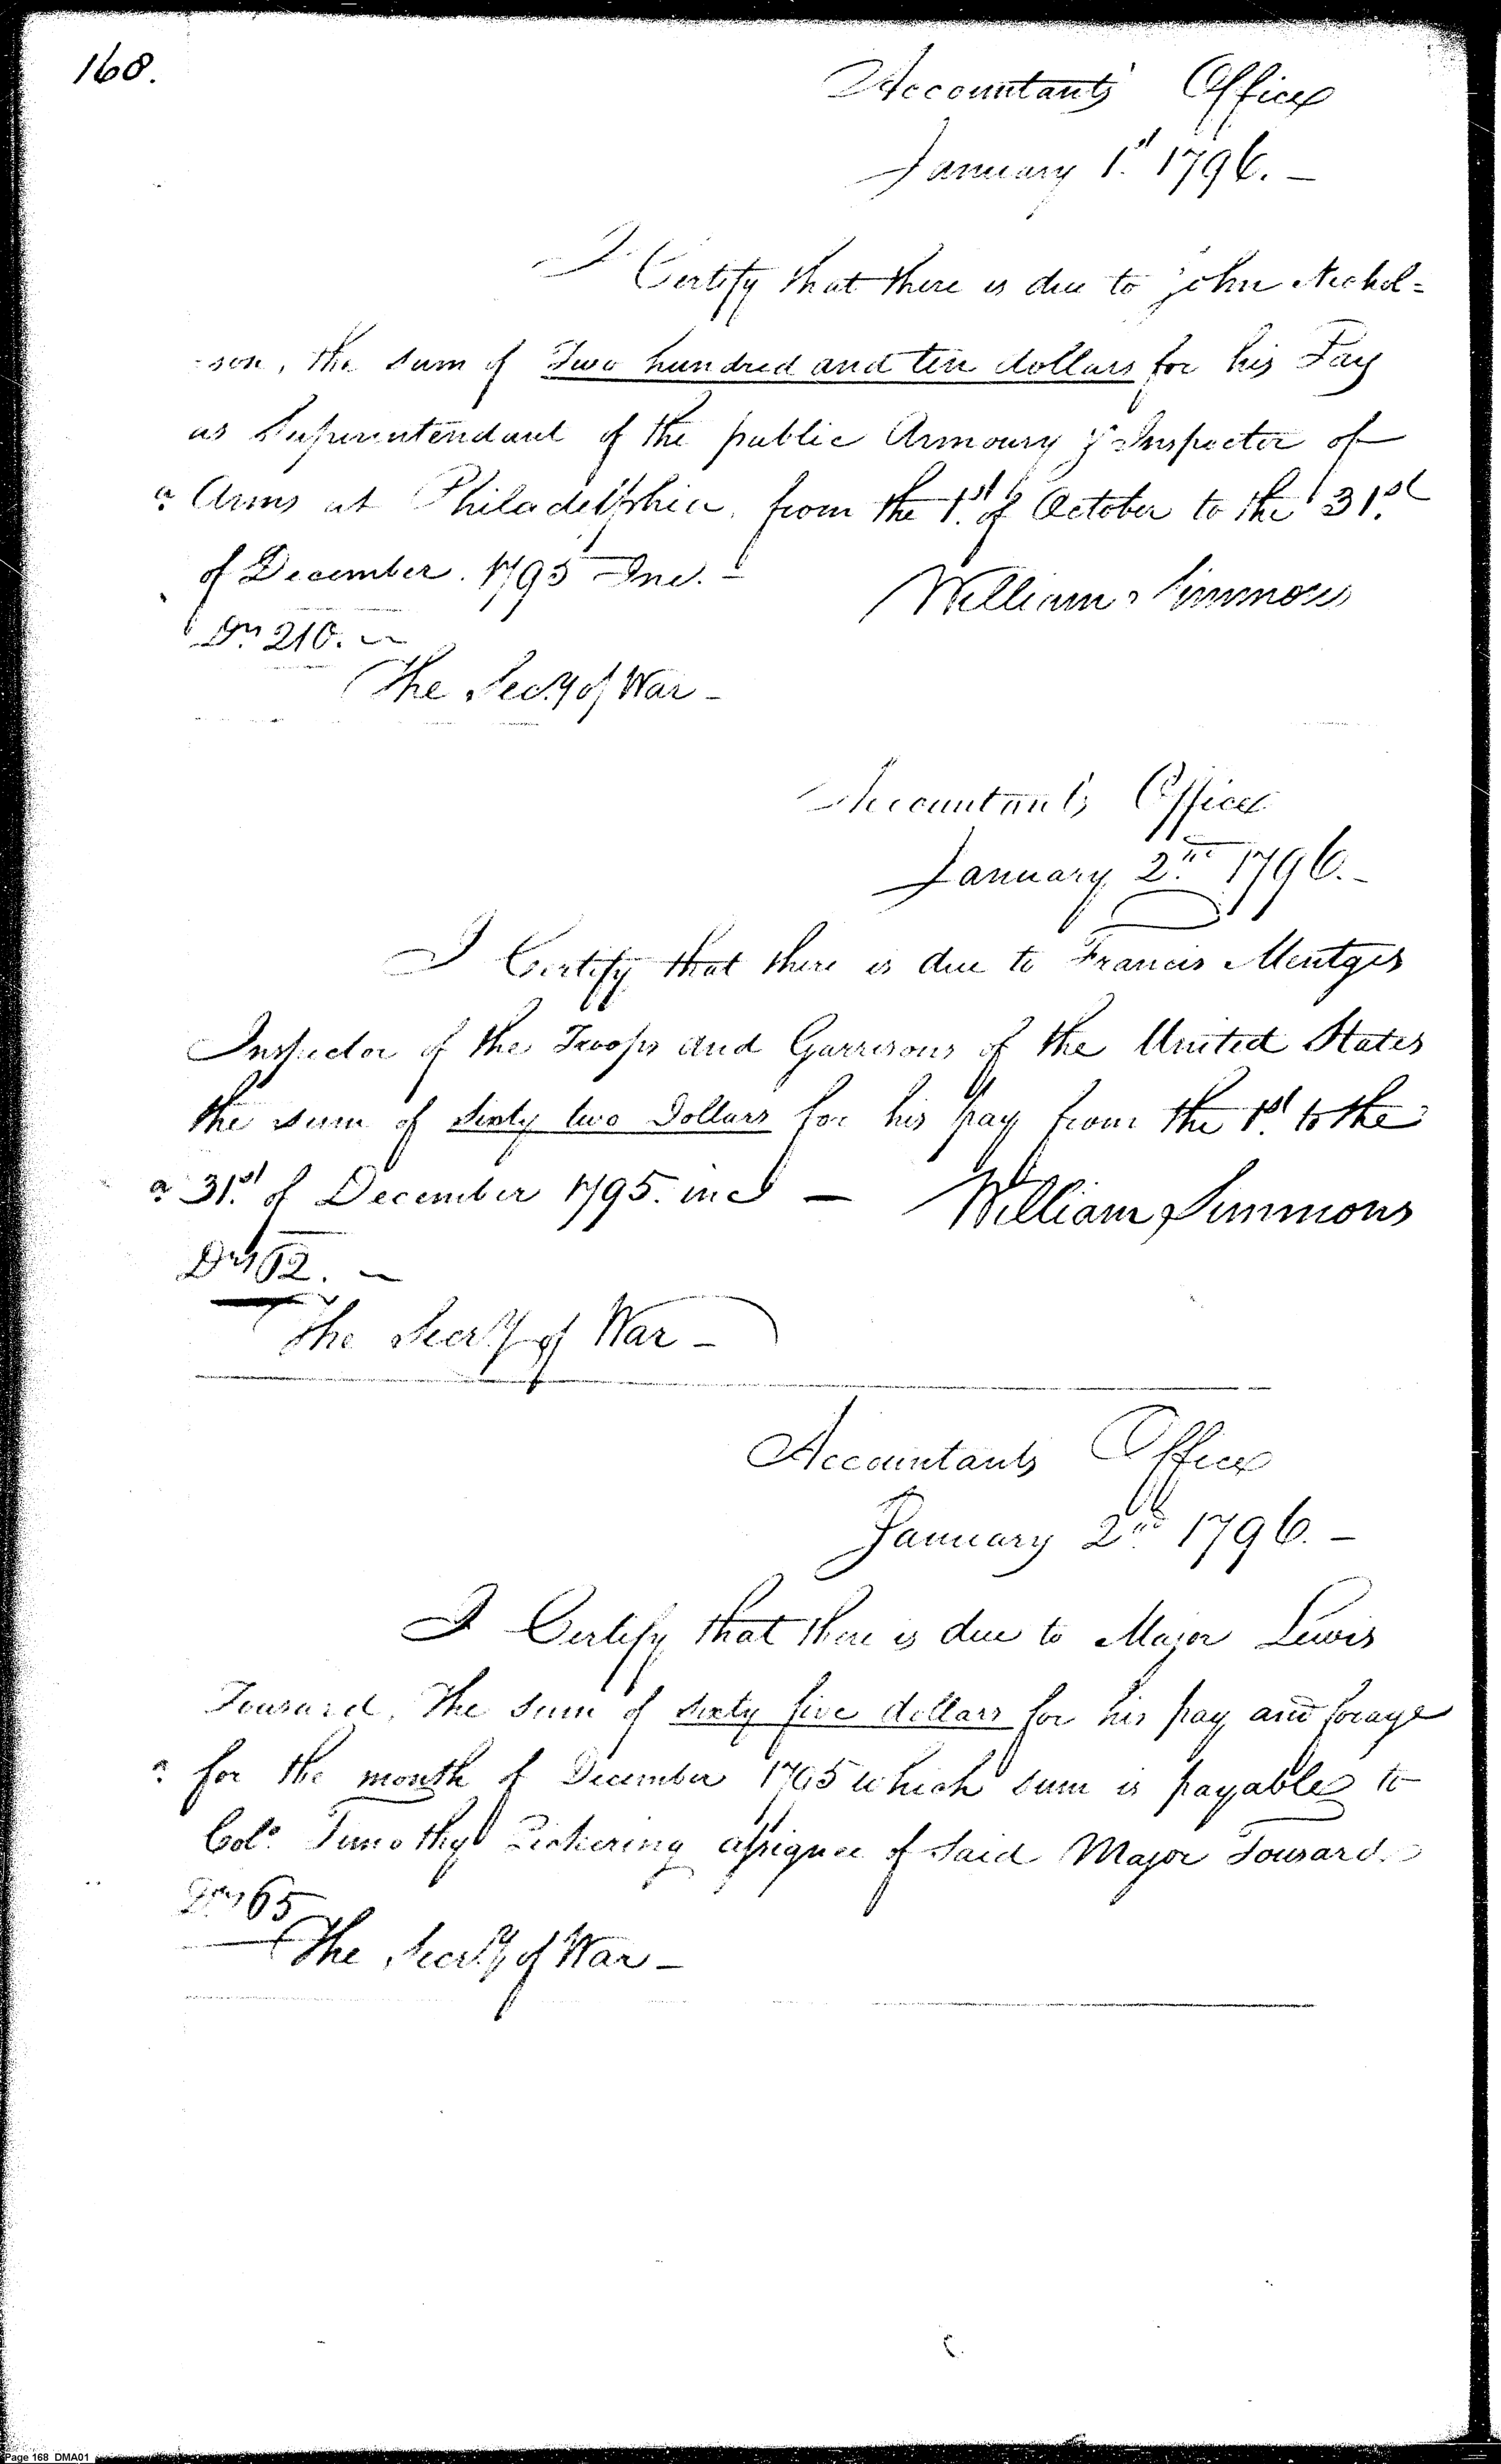 168.
Accountants Office
January 1st 1796. -
I Certify that there is due to John Nichol=
-son, the sum of Two hundred and ten dollars for his Pay
as Superintendant of the public Armoury & Inspector of
Arms at Philadelphia, from the 1st of October to the 31st
of December. 1795 Inc. -
William Simmons
Drs 210. -
The Secy of War -
Accountants Office
January 2nd 1796. -
I Certify that there is due to Francis Mentges
Inspector of the Troops and Garrisons of the United States
the sum of sixty two Dollars for his pay from the 1st to the
31st of December 1795. incl -
William Simmons
Drs 62. -
The Secry of War -
Accountants Office
January 2nd 1796. -
I Certify that there is due to Major Lewis
Tousard, the sum of sixty five dollars for his pay and forage
for the month of December 1795 which sum is payable to
Colo. Timothy Pickering assignee of said Major Tousard
Drs 65
The Secry of War -
Page 168 DMA01